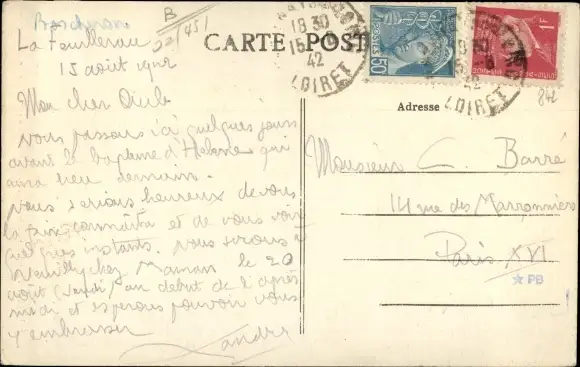 B
22/451
La Feuilleraie
15 août 1942
Mon cher Oncle
Nous passons ici quelques jours
avant le baptême d'Hélène qui
aura lieu demain.
Nous serions heureux de vous
la faire connaître et de vous voir
quelques instants. Nous serons à
Neuilly chez Maman le 20
août (jeudi) au début de l'après
midi et espérons pouvoir vous
y embrasser
CARTE POST
18 30
15
42
LOIRET
POSTES
50
1F
42
LOIRET
842
Adresse
Monsieur C. Barré
14 rue des Marronniers
Paris XVI
PB